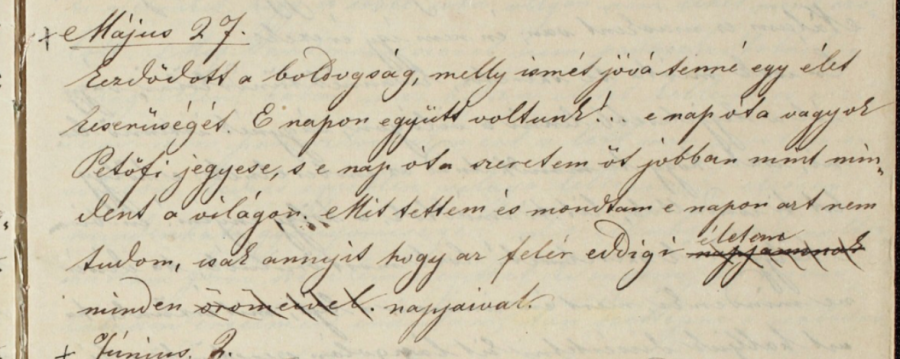 + Május 27.
kezdődött a boldogság, melly ismét jóvá tenné egy élet
keserűségét. E napon együtt voltunk!... e nap óta vagyok
Petőfi jegyese, s e nap óta szeretem őt jobban mint min„
dent a világon. Mit tettem és mondtam e napon azt nem
tudom, csak annyit hogy az felér eddigi napjaimnak életem
minden örömeivel. napjaival.
+ Június. 2.